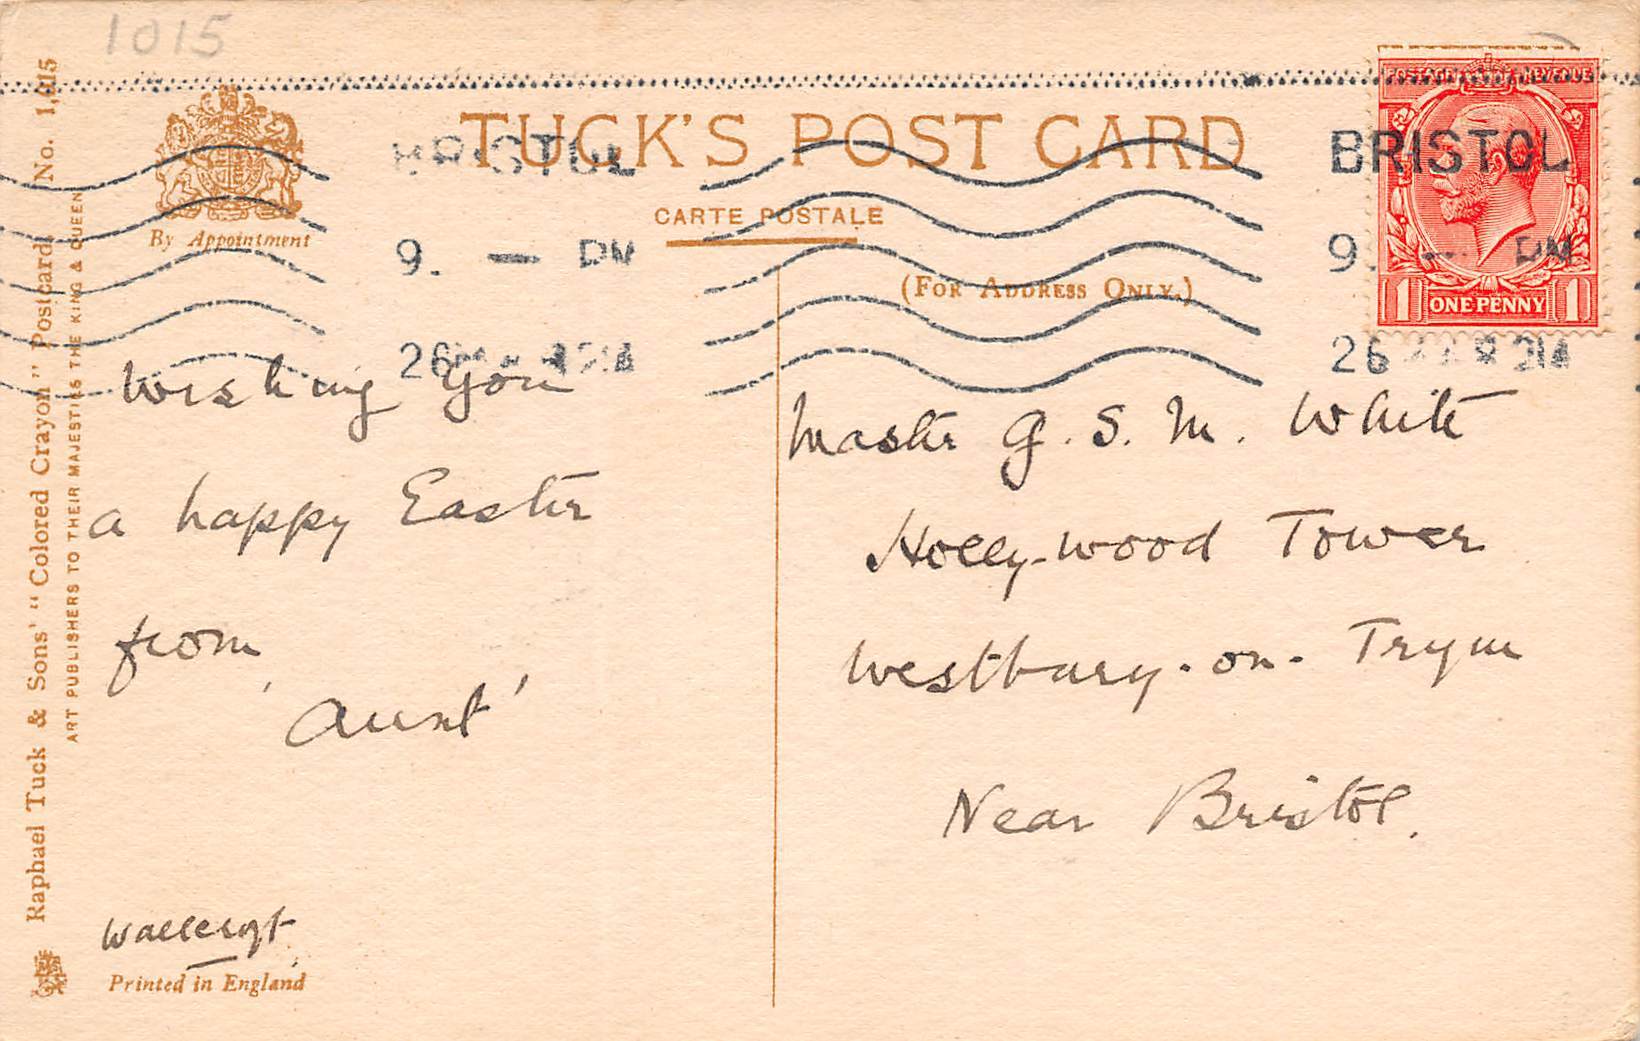 1015
TUCK'S POST CARD
CARTE POSTALE
(FOR ADDRESS ONLY.)
By Appointment
BRISTOL
9. — PM
26
BRISTOL
9. — PM
26
POSTAGE REVENUE
1 ONE PENNY 1
Raphael Tuck & Sons' "Colored Crayon" Postcard No. 1,015
ART PUBLISHERS TO THEIR MAJESTIES THE KING & QUEEN
Wishing you
a happy Easter
from
'Aunt'
Wallcroft
Printed in England
Master G. S. M. White
Holly-wood Tower
Westbury-on-Trym
Near Bristol.